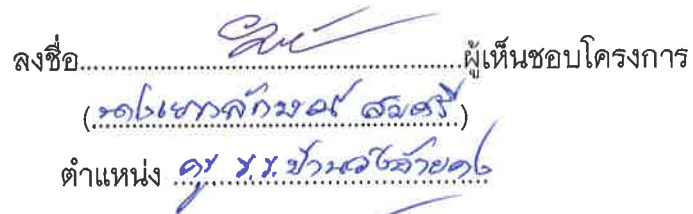 ลงชื่อ....................................................ผู้เห็นชอบโครงการ
(นางเยาวลักษณ์ สมศรี)
ตำแหน่ง ครู ร.ร. บ้านวัง